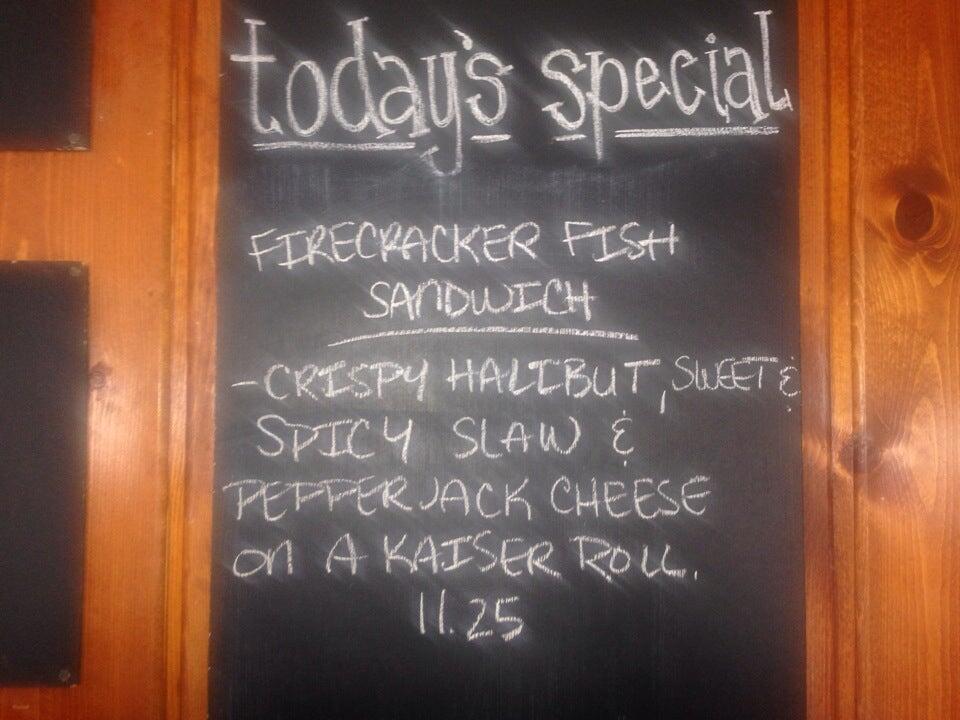 today's special
FIRECRACKER FISH
SANDWICH
-CRISPY HALIBUT, SWEET &
SPICY SLAW &
PEPPERJACK CHEESE
on A KAISER ROLL.
11.25